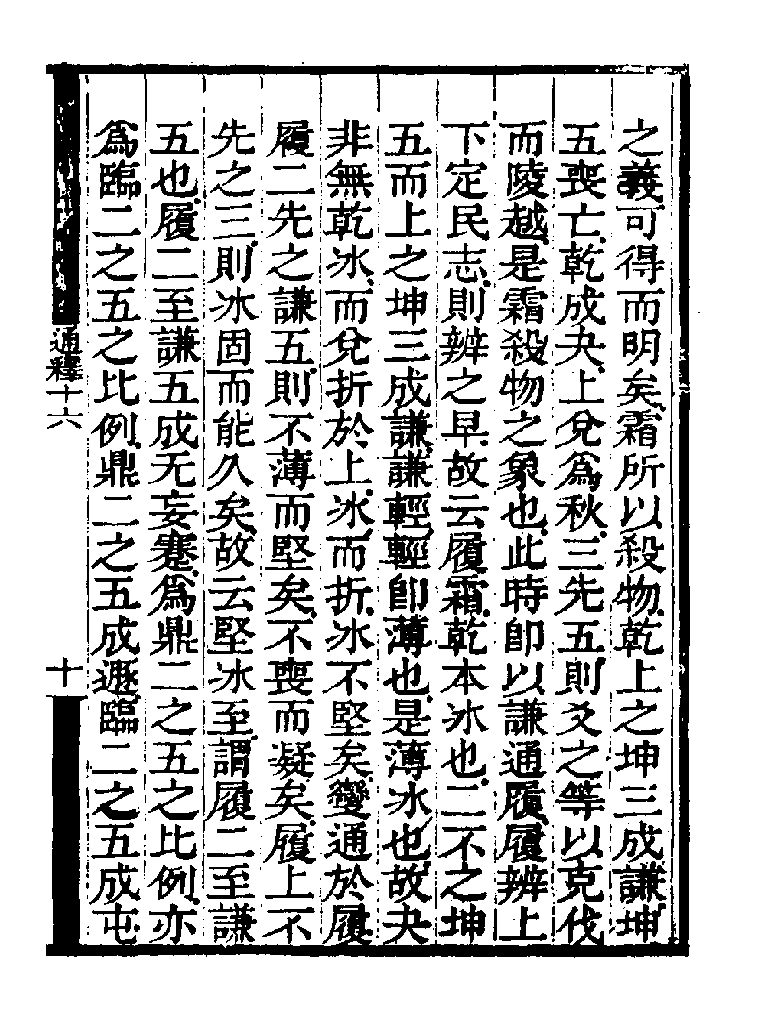 之義可得而明矣霜所以殺物乾上之坤三成謙坤
五喪亡乾成夬上兌爲秋三先五則爻之等以克伐
而陵越是霜殺物之象也此時卽以謙通履履辨上
下定民志則辨之早故云履霜乾本冰也二不之坤
五而上之坤三成謙謙輕輕卽薄也是薄冰也故夬
非無乾冰而兌折於上冰而折冰不堅矣變通於履
履二先之謙五則不薄而堅矣不喪而凝矣履上不
先之三則冰固而能久矣故云堅冰至謂履二至謙
五也履二至謙五成无妄蹇爲鼎二之五之比例亦
爲臨二之五之比例鼎二之五成遯臨二之五成屯
通釋十六
十